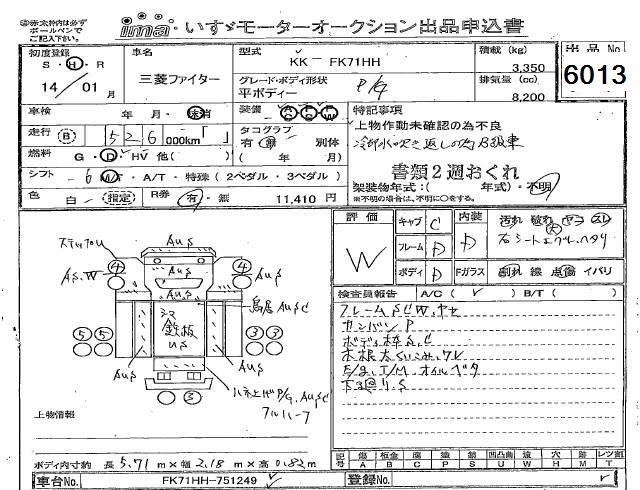 ※太枠内は必ず
ボールペンで
ご記入下さい。
ima いすゞモーターオークション出品申込書
初度登録
S・H・R
14/01月
車名
三菱ファイター
型式
KK－FK71HH
グレード・ボディ形状
平ボディー P/G
積載(kg)
3,350
排気量(cc)
8,200
出品No
6013
車検 年・月・抹消
装備
特記事項
走行 B 526000km「 」
タコグラフ
有 無 別体
( 年 月)
上物作動未確認の為不良
冷却水吹き返しの為B級車
燃料 G・D・HV 他( )
シフト 6MT・A/T・特殊(2ペダル・3ペダル)
書類2週おくれ
架装物年式:( 年式)・不明
※不明の場合は、不明に○をする。
色 白 指定
R券 有・無 11,410円
評価
W
キャブ C
フレーム D
ボディ D
内装 D
Fガラス
汚れ 破れ ヤコ スレ
右シートエグレ・ヘタリ
割れ 線 点傷 イバリ
検査員報告 A/C(✓) B/T( )
フレームSCW.ヤセ
カンバンP
ボディ枠S.C
木根太くいこみ、ワレ
E/g.T/M.オイルベタ
下3回り.S
ステップU
AUS
AS.W
4
4
AUS
鳥居AUSC
シマ鉄板
US
5 5
3 3
AUS
AUS
AUS
ハネ上げP/G.AUSC
アルハーフ
3
上物情報
ボディ内寸約 長5.71m×幅2.18m×高0.82m
記号 傷 板金 腐 塗 凹凸曲 違 穴 跡 レツ割
A B C P S U W H M T
車台No. FK71HH-751249
登録No.